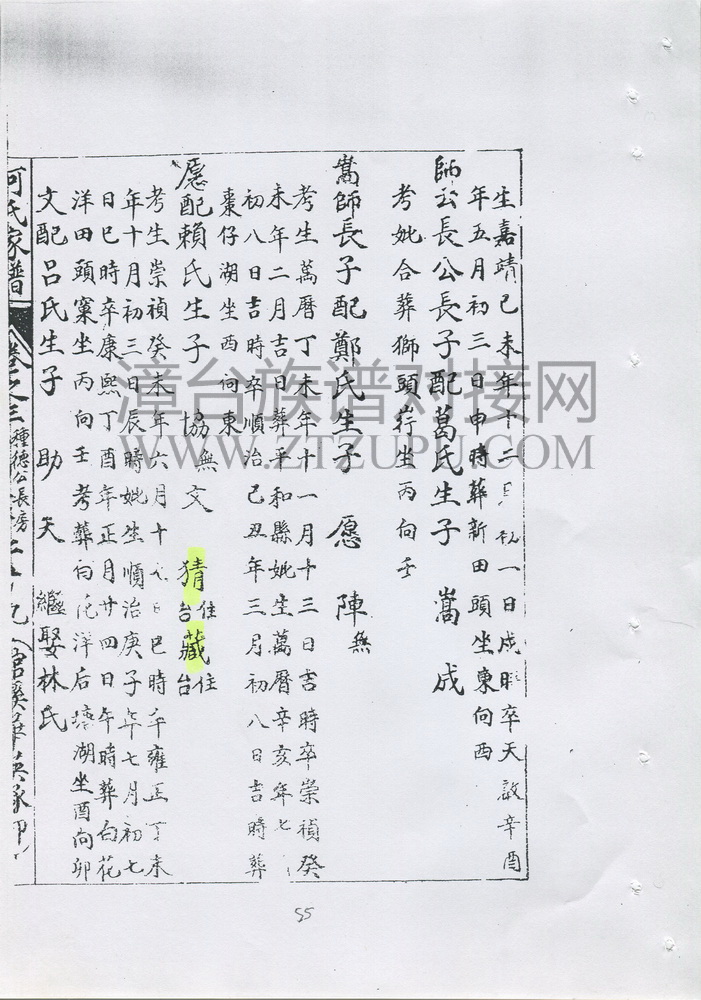 生嘉靖己未年十二月初一日戌時卒天啟辛酉
年五月初三日申時葬新田頭坐東向西
師公長公長子配葛氏生子 嵩 成
考妣合葬獅頭崎坐丙向壬
嵩師長子配鄭氏生子 愿 陣無
考生萬曆丁未年十一月十三日吉時卒崇禎癸
未年二月吉日葬平和縣妣生萬曆辛亥年七
初八日吉時卒順治己丑年三月初八日吉時葬
棗仔湖坐西向東
愿配賴氏生子 協無 文 猜住台 藏住台
考生崇禎癸未年六月十六日巳時卒雍正丁未
年十月初三日辰時妣生順治庚子年七月初七
日巳時卒康熙丁酉年正月廿四日午時葬白花
洋田頭窠坐丙向壬考葬白花洋后 湖坐酉向卯
文配呂氏生子 助 天 繼娶林氏
何氏家譜 卷之三 種德公長房 九
漳台族谱对接网
WWW.ZTZUPU.COM
55